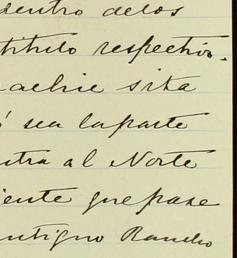 dentro delos
titulo respectivo.
sita
ó sea la parte
ntra al Norte
iente que pase
antiguo Rancho